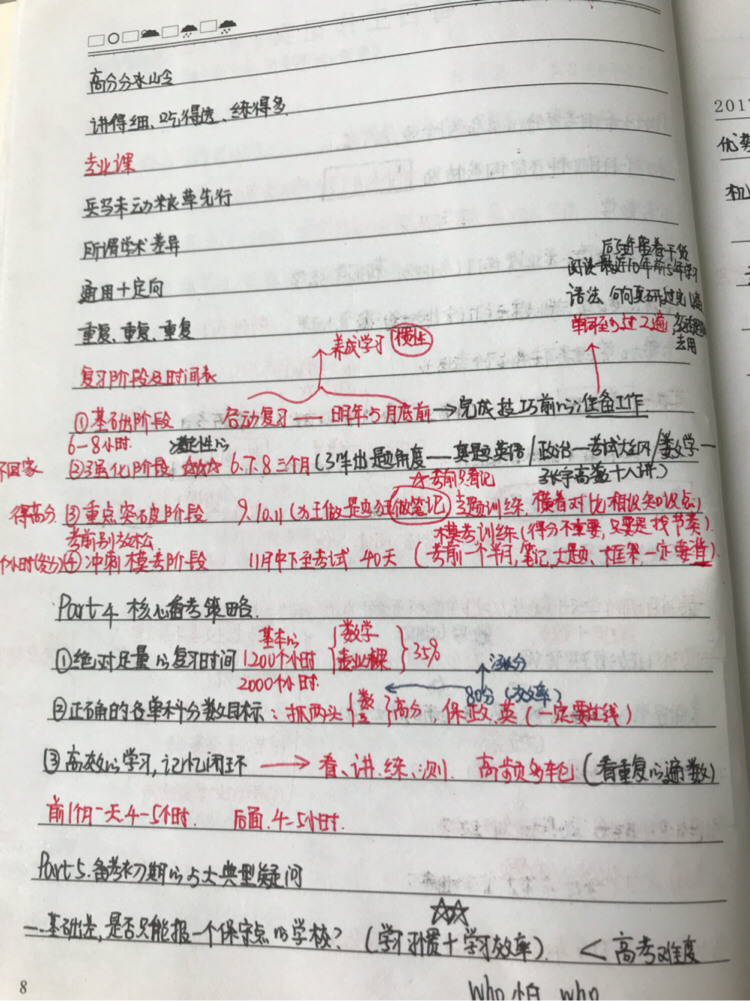 高分分水岭
讲得细、吃得透、练得多
专业课
兵马未动粮草先行
所谓学术差异
通用十定向
后5年留着干货
阅读最近10年前5年学习
语法
单词至少过2遍
去用
重复、重复、重复
养成学习惯性
复习阶段及时间表
①基础阶段 启动复习——明年5月底前→完成技巧前的准备工作
6-8小时 决定性的
②强化阶段 ☆☆☆ 6.7.8三个月(了解出题角度——真题英语/政治—考试大纲/数学—
张宇高数十八讲)
不回家
☆考前只看它
得高分 ③重点突破阶段 9.10.11(为主做题为主做笔记)专题训练.横着对比相似知识点)
考前别放松 模考训练(得分不重要,只要是找节奏)
④冲刺模考阶段 11月中下至考试 40天 (考前一个半月,笔记,大题、大框架,一定要背)
Part4 核心备考策略.
基本的
①绝对足量的复习时间 1200个小时 {数学 专业课} 35%
2000个小时. 涨分
80分(效率)
②正确的各单科分数目标:抓两头{数 专}高分 保政.英(一定要过线)
③高效的学习,记忆闭环 → 看、讲、练、测. 高频多轮(看重复的遍数)
前1个月一天4-5小时. 后面.4-5小时.
Part5.备考初期的5大典型疑问
一.基础差,是否只能报一个保守点的学校?(学习习惯+学习效率) <高考难度
who怕who
8
2017
优势
机